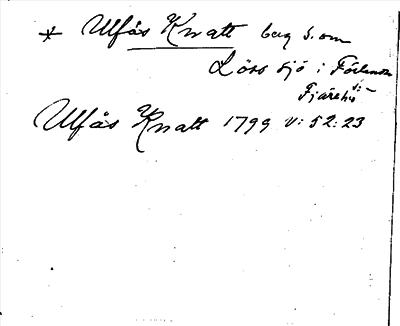 * Ulfås Knatt berg S. om
Lörs sjö i Förlanda
Fjäre hd
Ulfås Knatt 1799 V: 52: 23